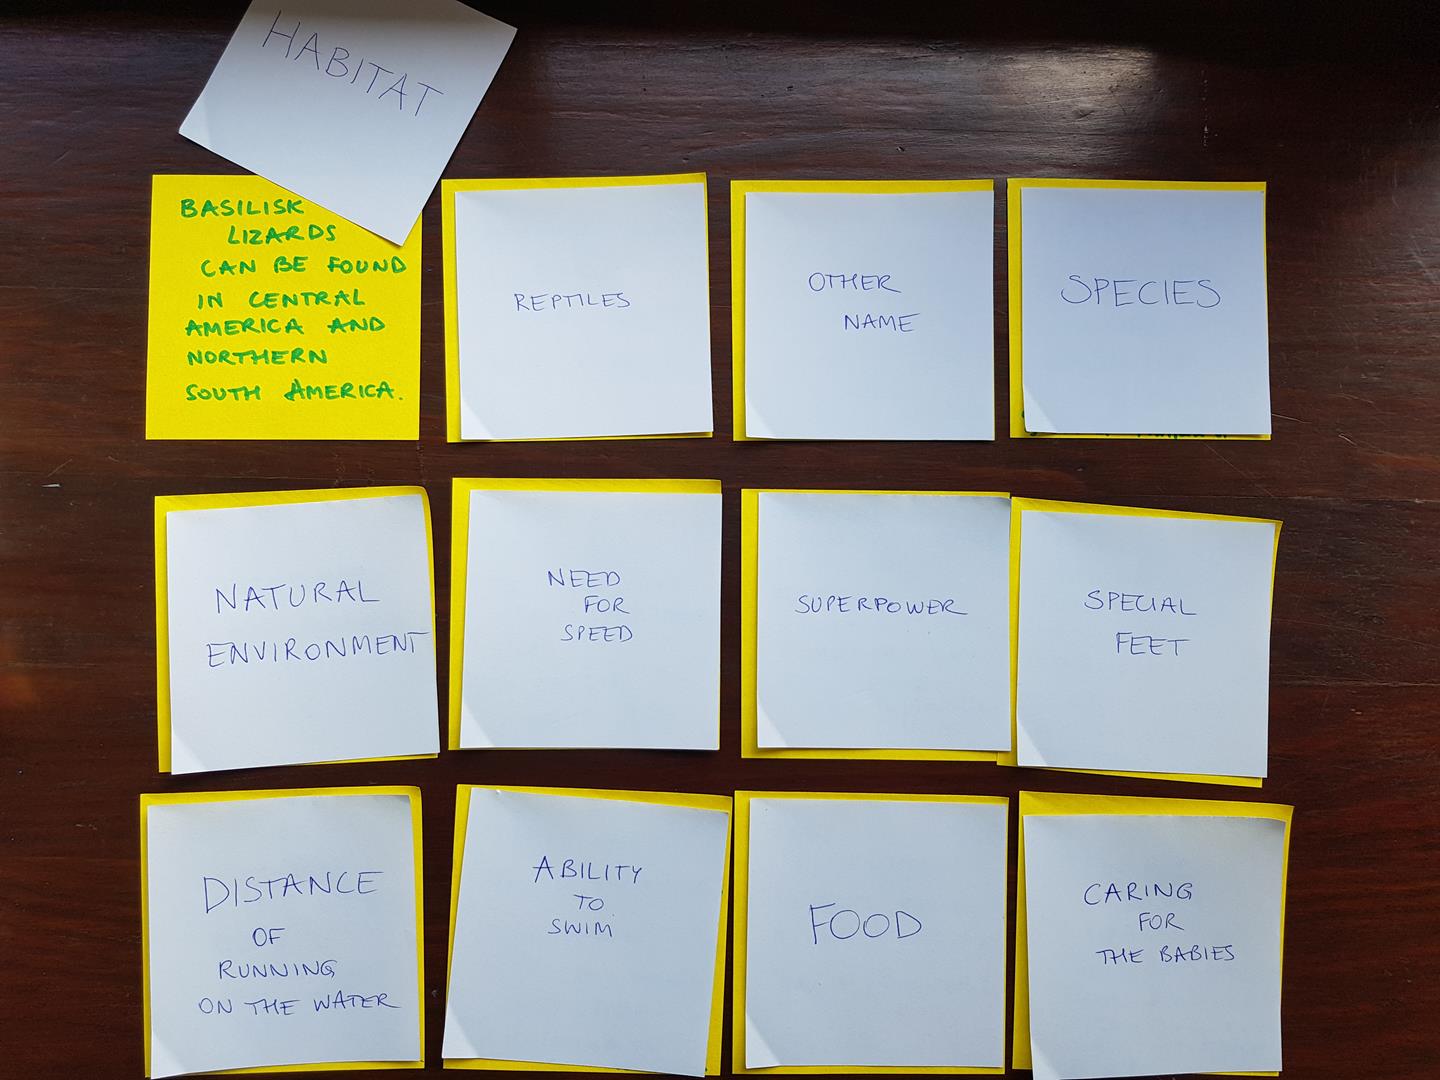 HABITAT
BASILISK
LIZARDS
CAN BE FOUND
IN CENTRAL
AMERICA AND
NORTHERN
SOUTH AMERICA.
REPTILES
OTHER
NAME
SPECIES
NATURAL
ENVIRONMENT
NEED
FOR
SPEED
SUPERPOWER
SPECIAL
FEET
DISTANCE
OF
RUNNING
ON THE WATER
ABILITY
TO
SWIM
FOOD
CARING
FOR
THE BABIES